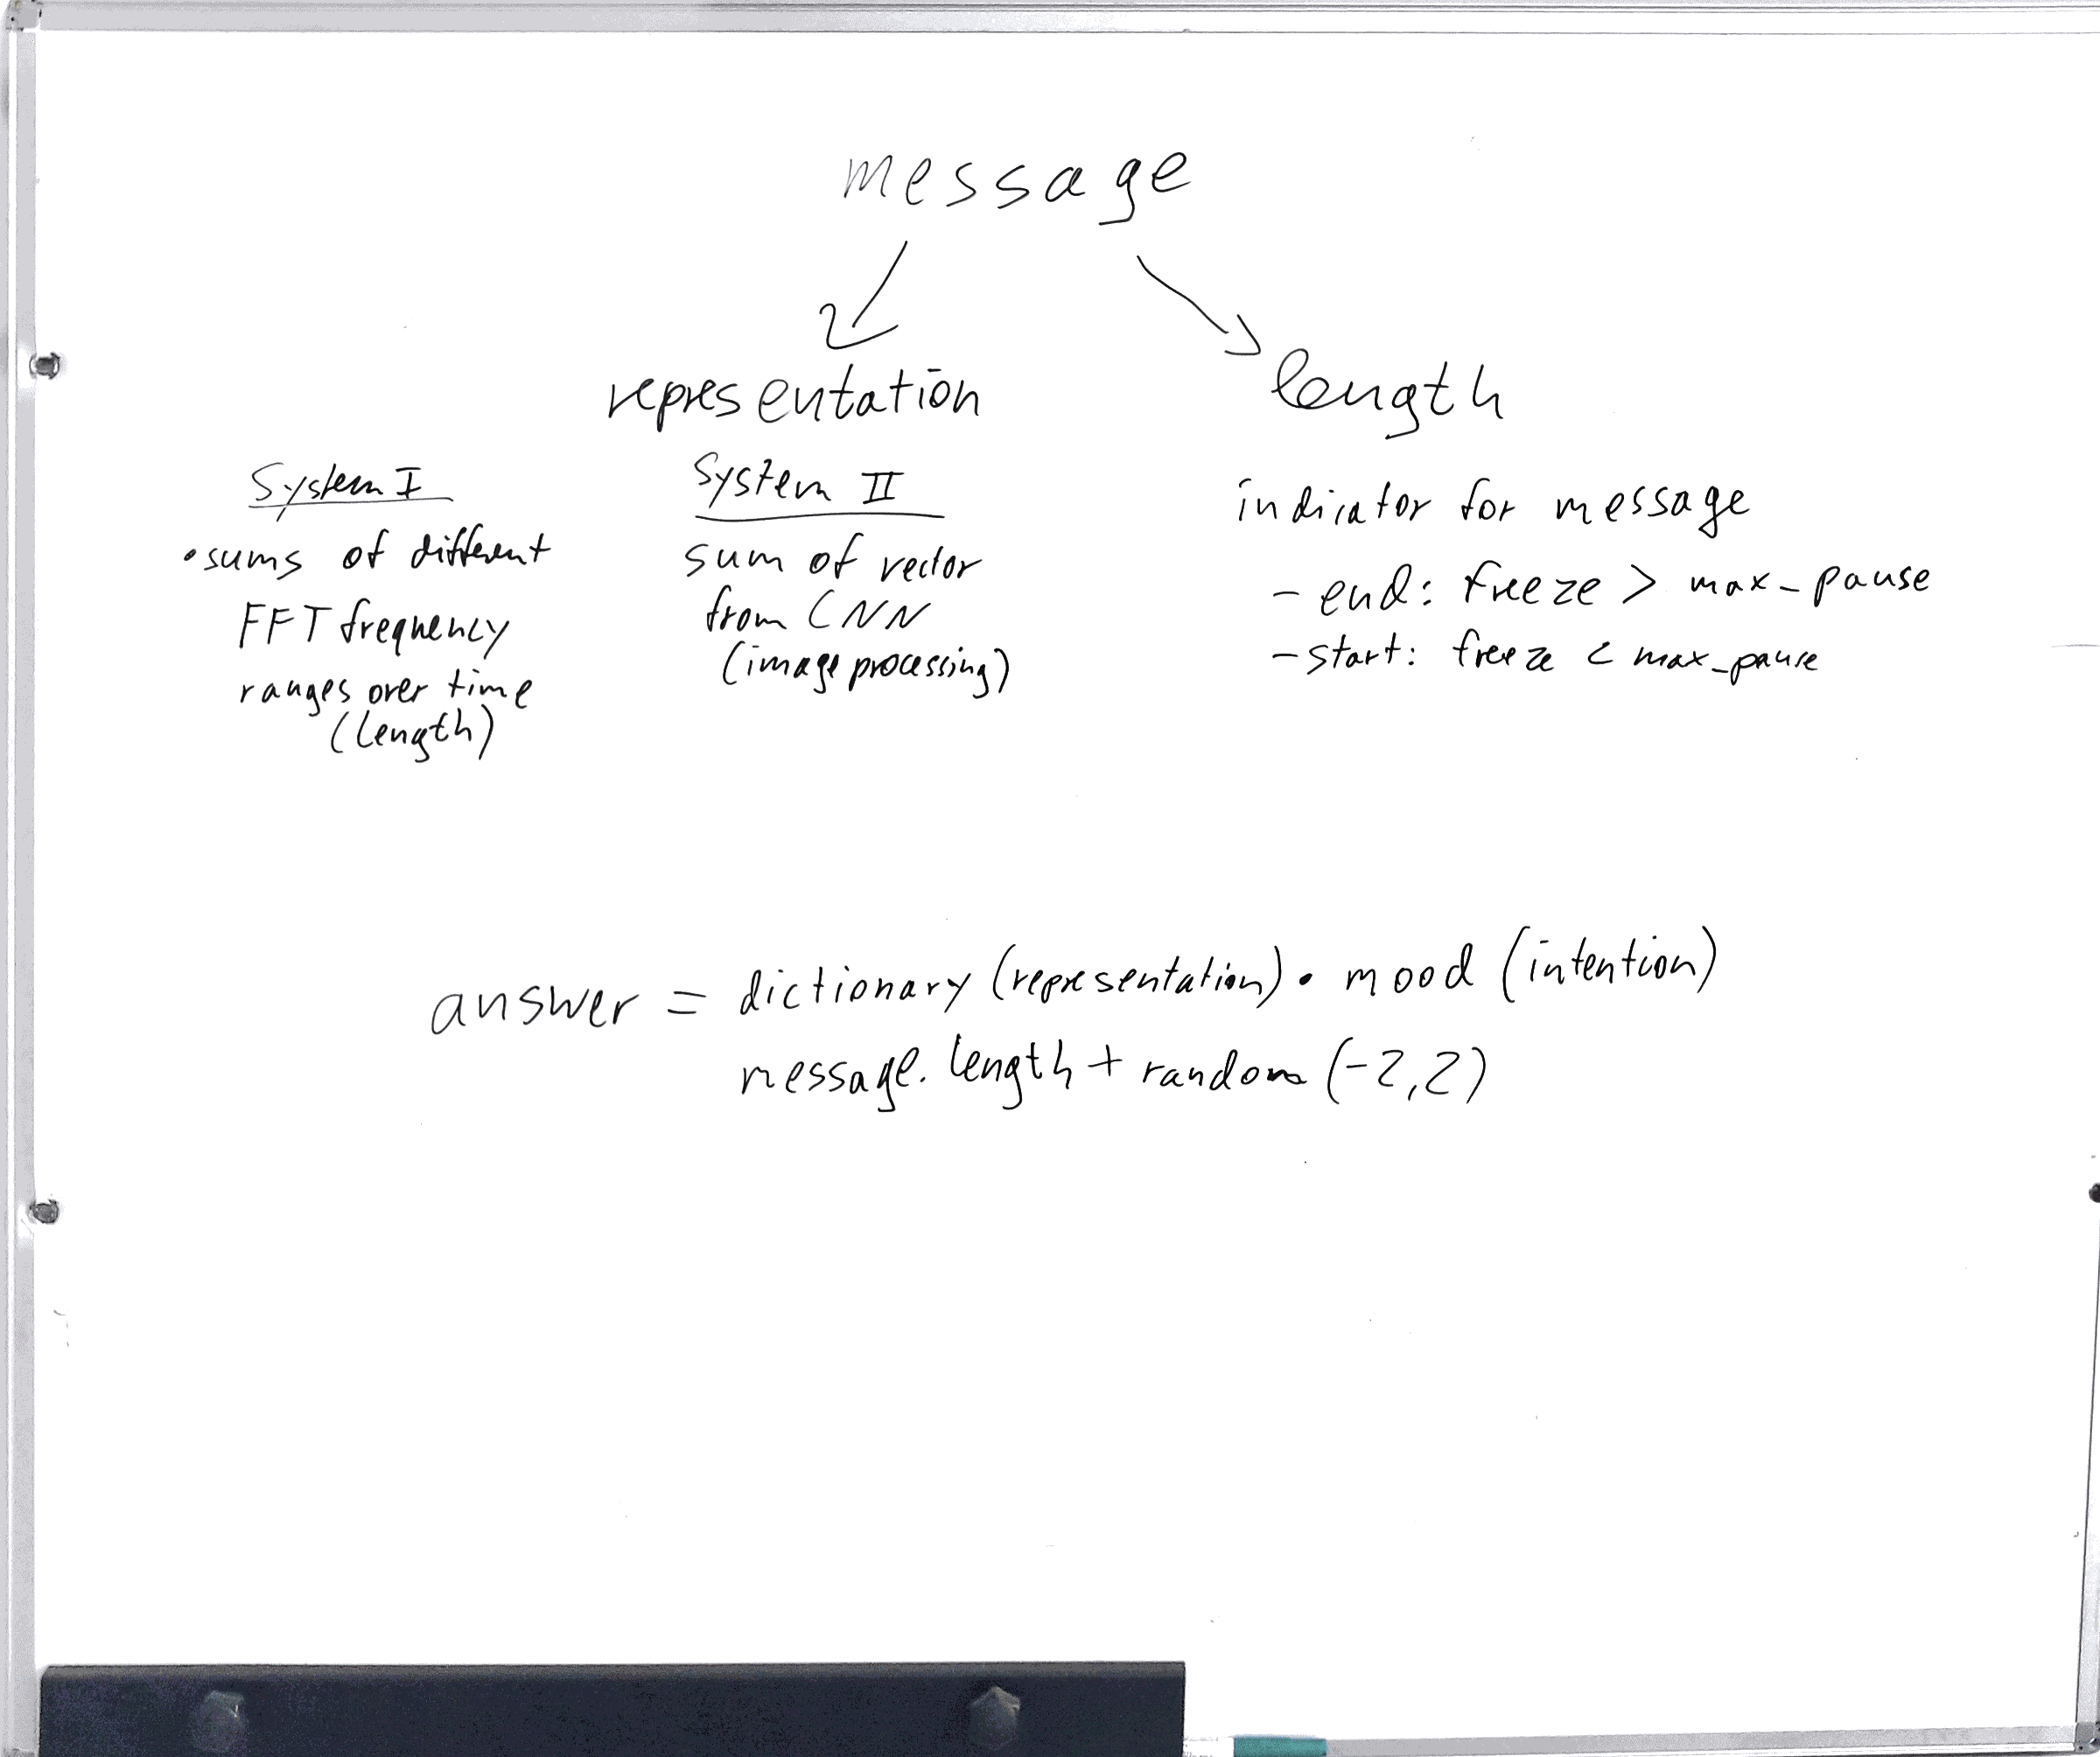 message
representation
length
System I
• sums of different
FFT frequency
ranges over time
(length)
System II
sum of vector
from CNN
(image processing)
indicator for message
- end: freeze > max_pause
- start: freeze < max_pause
answer = dictionary (representation) • mood (intention)
message. length + random (-2,2)